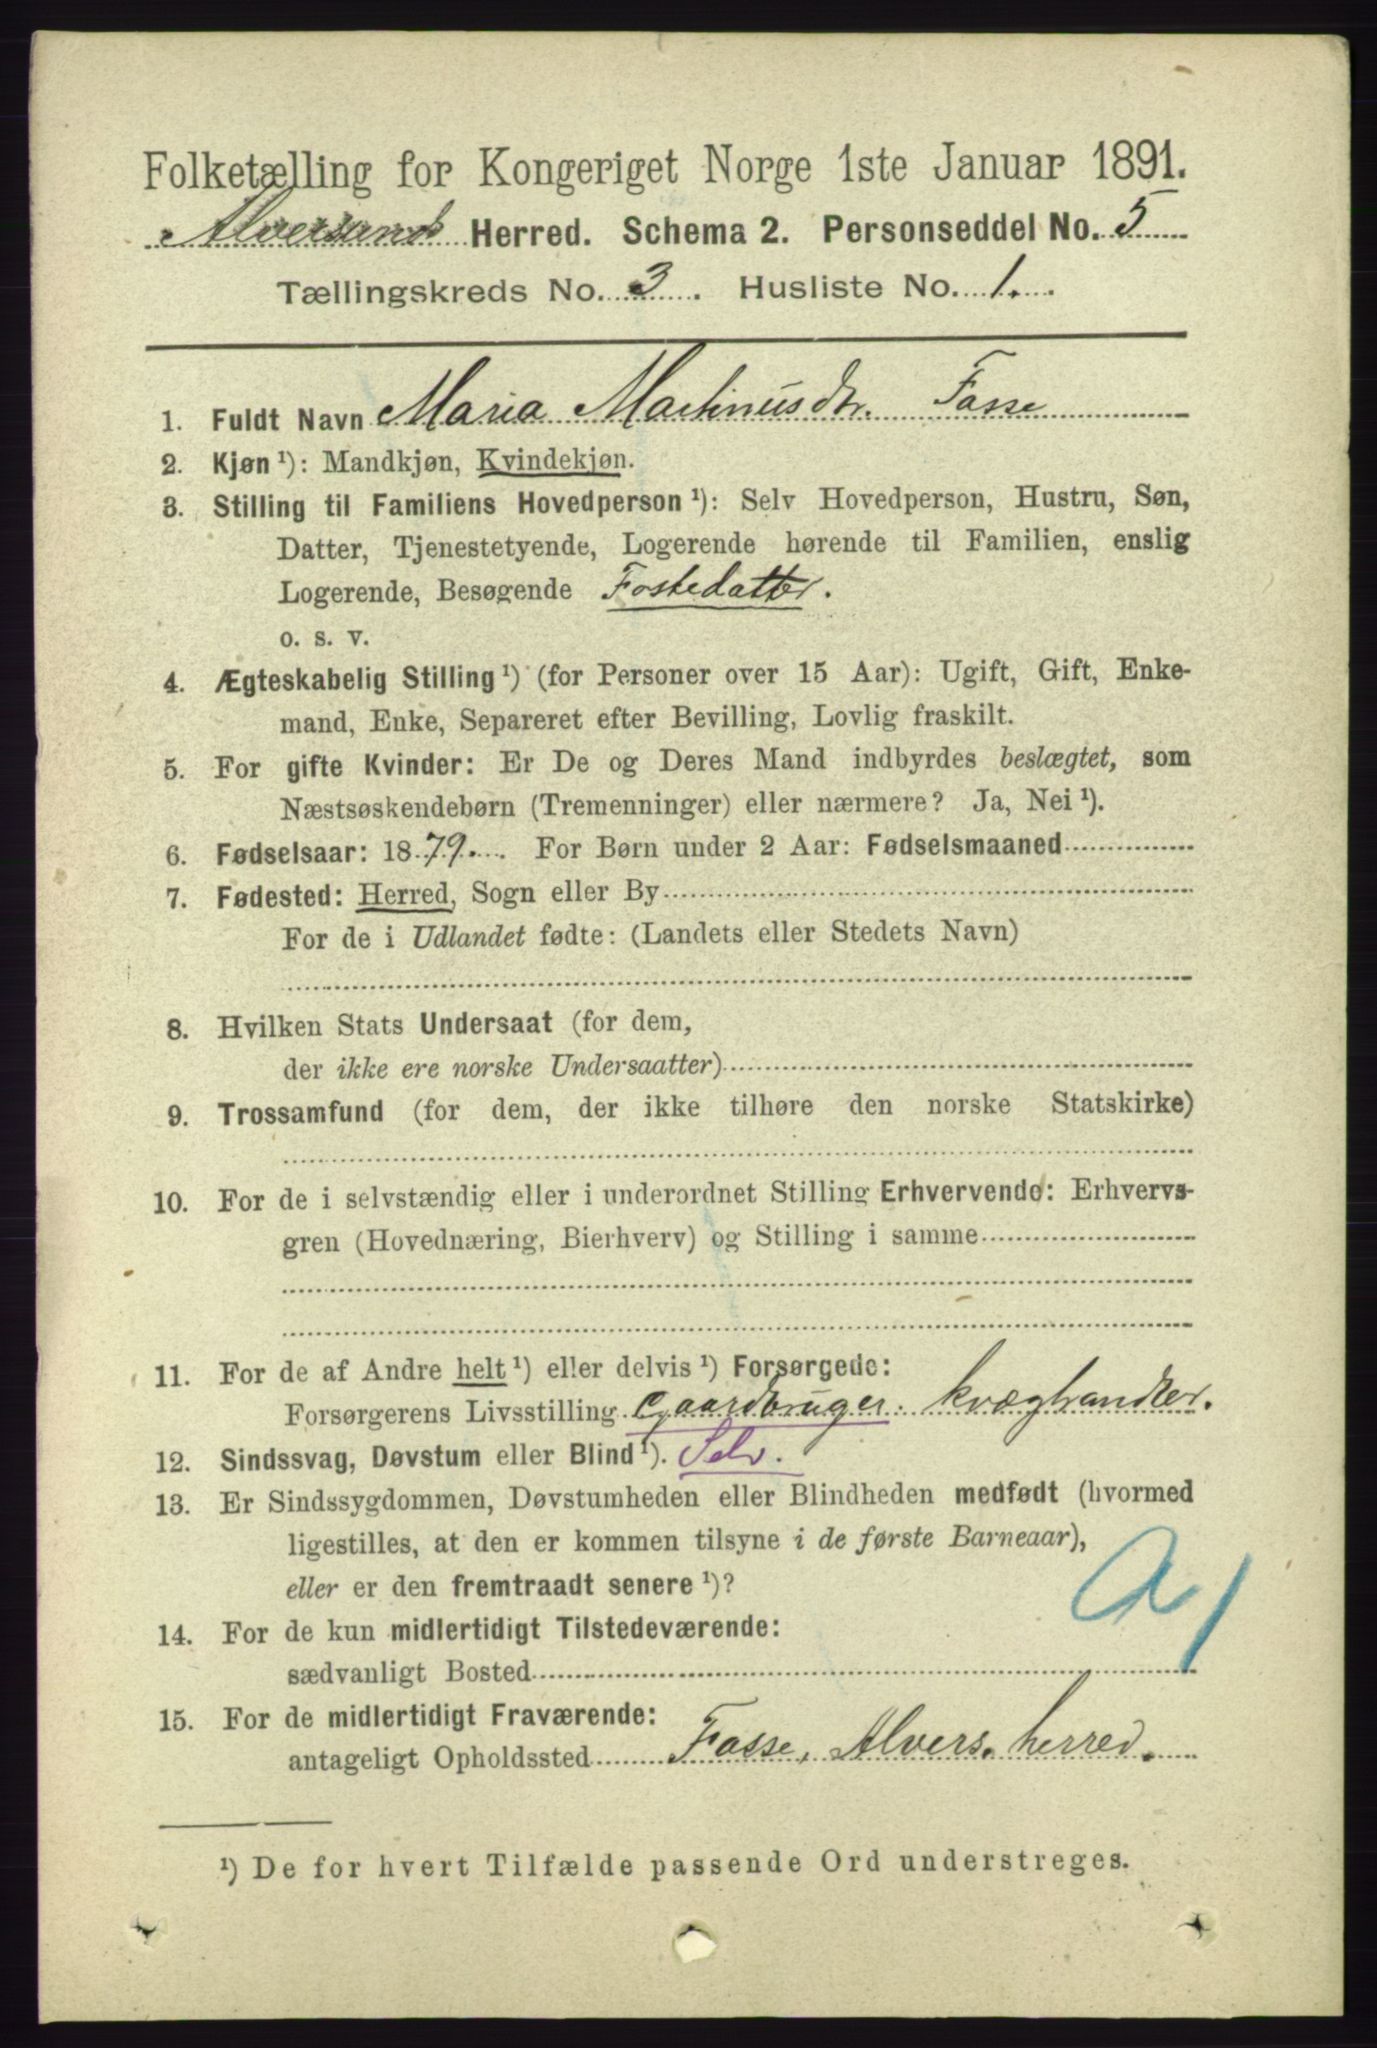 Folketælling for Kongeriget Norge 1ste Januar 1891.
Alversund Herred. Schema 2. Personseddel No. 5
Tællingskreds No. 3. Husliste No. 1.
1. Fuldt Navn Maria Martinusdtr. Fosse
2. Kjøn ¹): Mandkjøn, Kvindekjøn.
3. Stilling til Familiens Hovedperson ¹): Selv Hovedperson, Hustru, Søn,
Datter, Tjenestetyende, Logerende hørende til Familien, enslig
Logerende, Besøgende Fostedatter.
o. s. v.
4. Ægteskabelig Stilling ¹) (for Personer over 15 Aar): Ugift, Gift, Enke-
mand, Enke, Separeret efter Bevilling, Lovlig fraskilt.
5. For gifte Kvinder: Er De og Deres Mand indbyrdes beslægtet, som
Næstsøskendebørn (Tremenninger) eller nærmere? Ja, Nei ¹).
6. Fødselsaar: 1879. For Børn under 2 Aar: Fødselsmaaned
7. Fødested: Herred, Sogn eller By
For de i Udlandet fødte: (Landets eller Stedets Navn)
8. Hvilken Stats Undersaat (for dem,
der ikke ere norske Undersaatter)
9. Trossamfund (for dem, der ikke tilhøre den norske Statskirke)
10. For de i selvstændig eller i underordnet Stilling Erhvervende: Erhvervs-
gren (Hovednæring, Bierhverv) og Stilling i samme
11. For de af Andre helt ¹) eller delvis ¹) Forsørgede:
Forsørgerens Livsstilling Gaardbruger. kvæghandler.
12. Sindssvag, Døvstum eller Blind ¹). Selv.
13. Er Sindssygdommen, Døvstumheden eller Blindheden medfødt (hvormed
ligestilles, at den er kommen tilsyne i de første Barneaar),
eller er den fremtraadt senere ¹)?
14. For de kun midlertidigt Tilstedeværende:
sædvanligt Bosted
15. For de midlertidigt Fraværende:
antageligt Opholdssted Fosse, Alvers. herred.
¹) De for hvert Tilfælde passende Ord understreges.